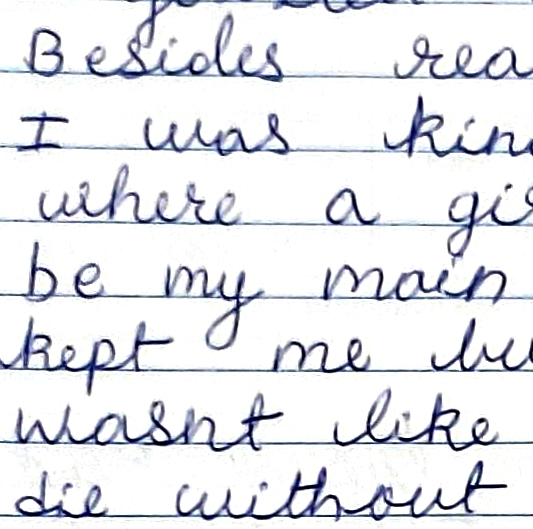 Besides rea
I was kin
where a gi
be my main
kept me bu
wasnt like
die without